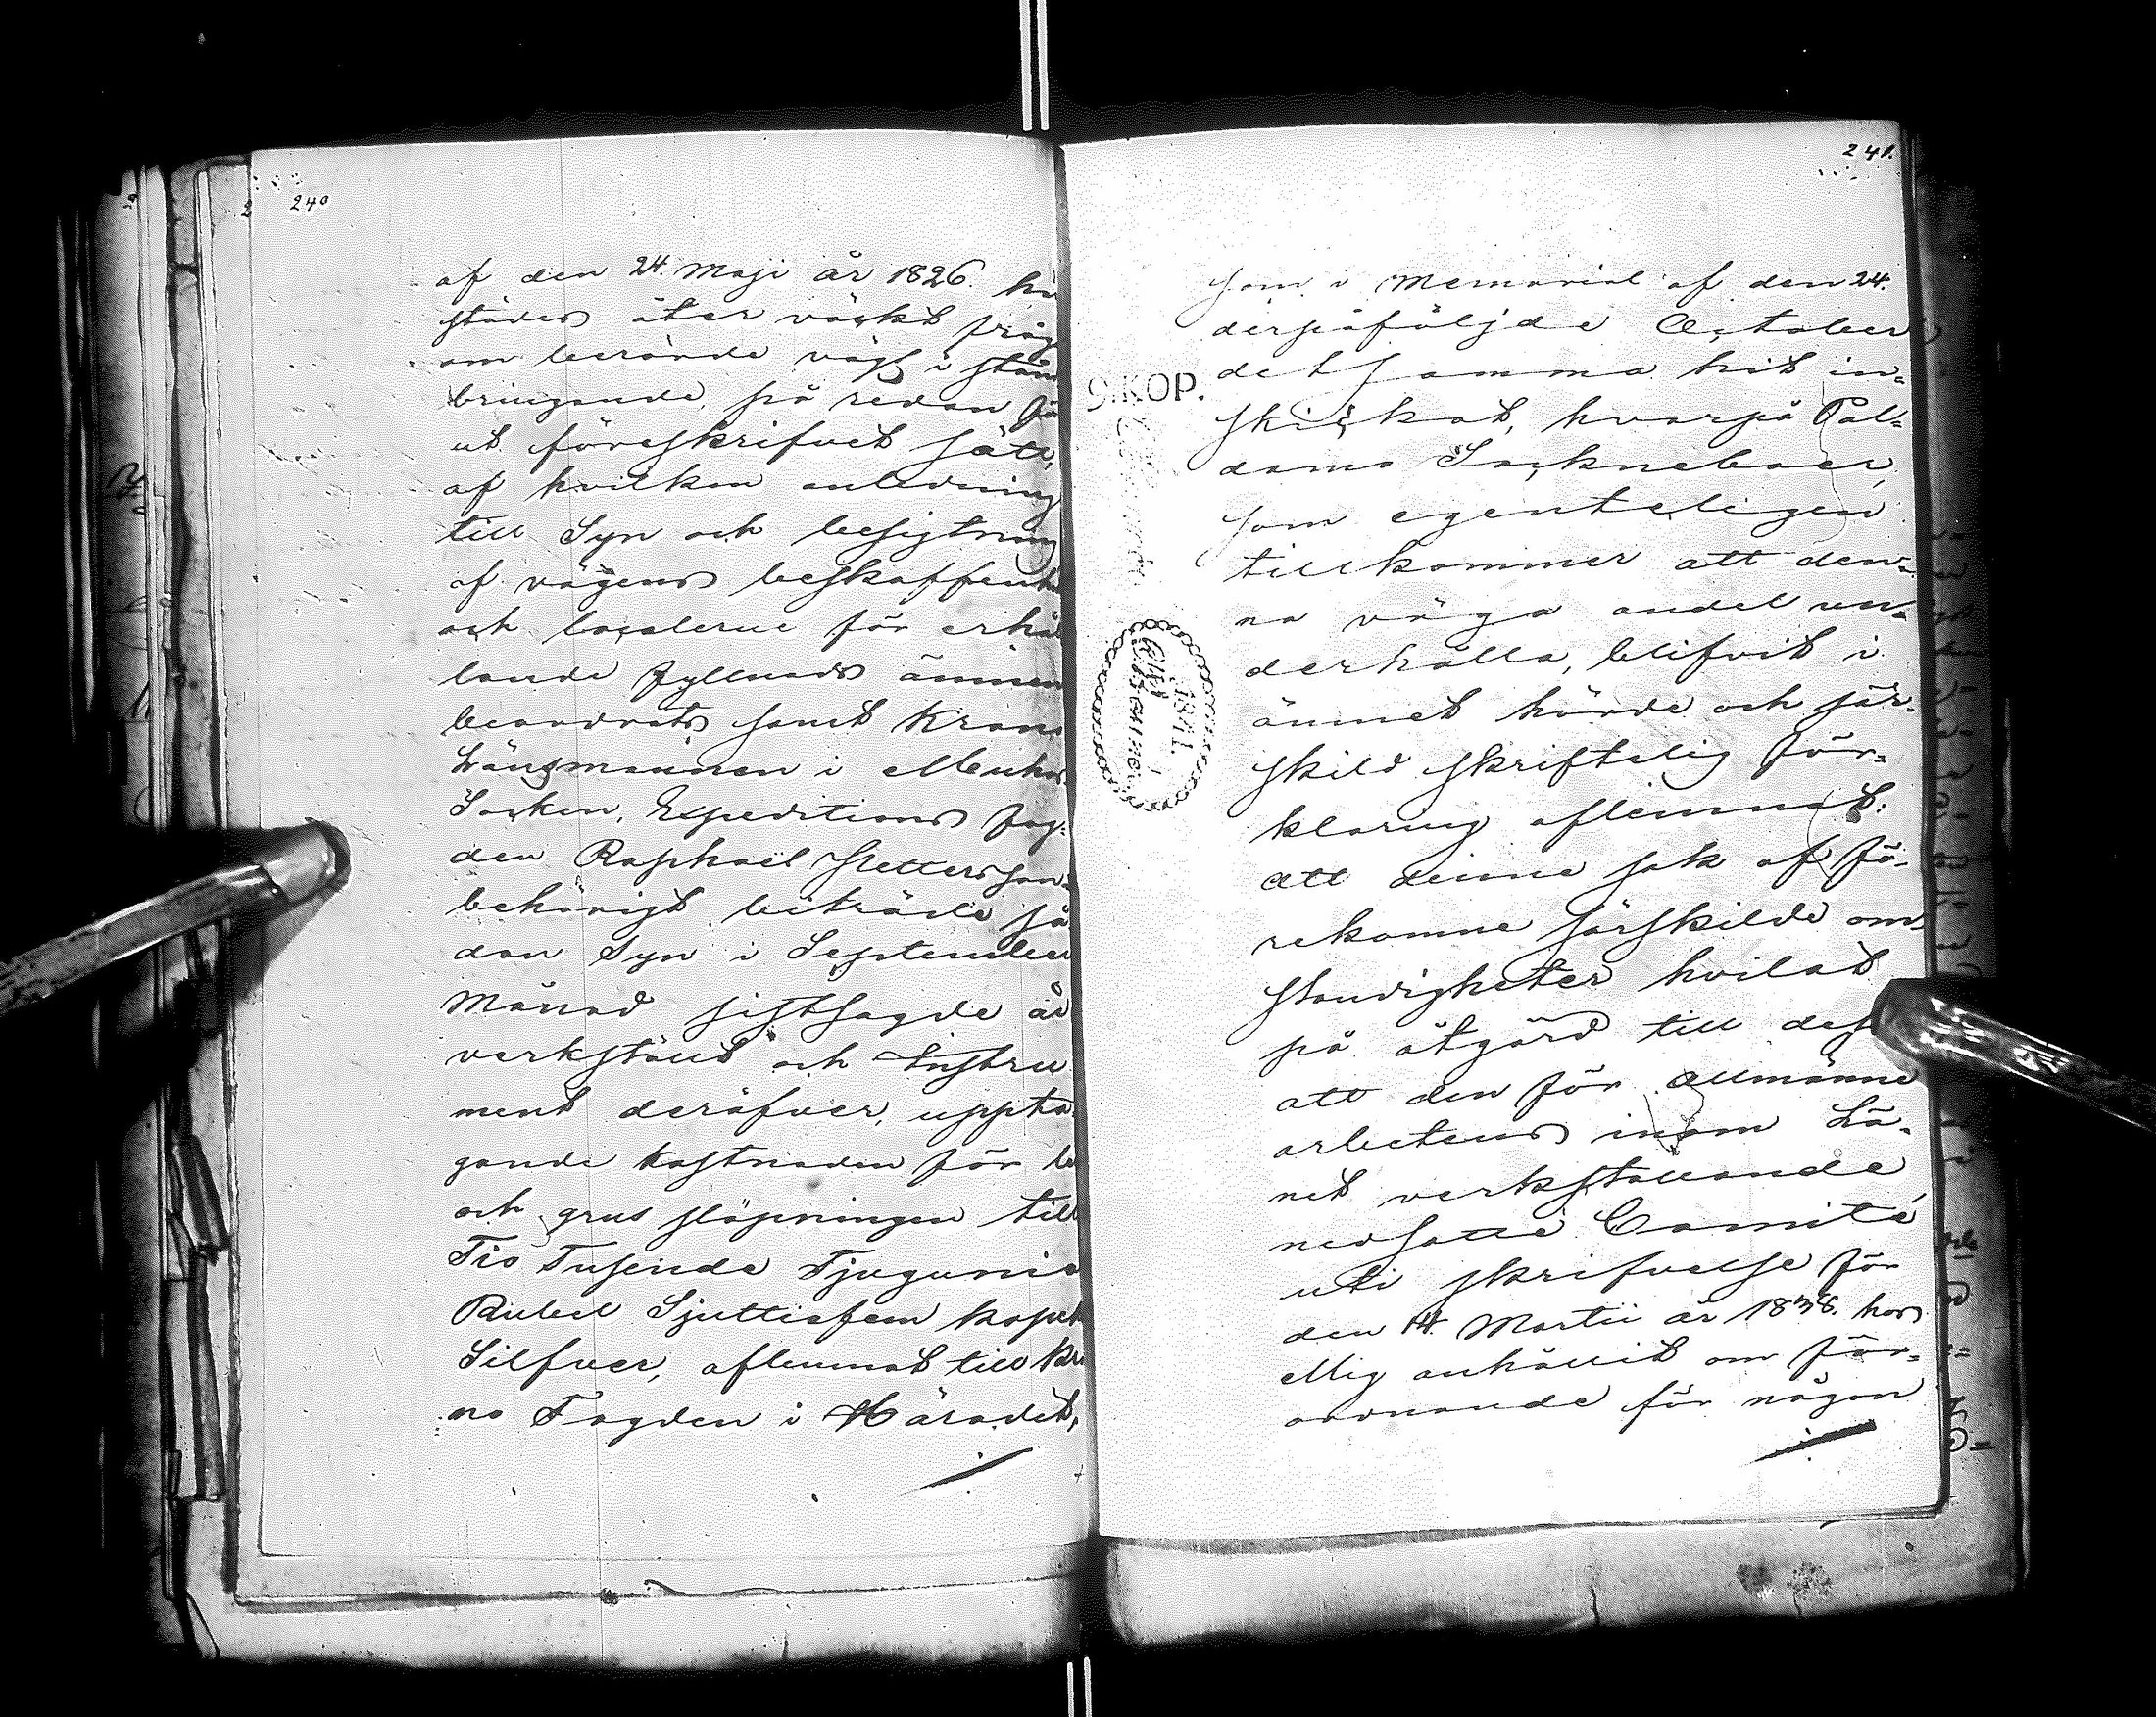 240
af den 24. Maji år 1826. hä
städes åter väckt fråg
om berörde vägs i stån
bringande, på redan för
ut föreskrifvet sätt,
af hvilken anledning
till Syn och besigtning
af vägens beskaffenhe
och localerne för erhål
lande fyllnads ämnen
beordrats samt Krono
Länsmannen i Muhos
Socken, Expeditions Fog-
den Raphael
behörigt biträde så
dan Syn i September
Månad sistsagde år
verkstäldt och Instru
ment deröfver, uppta
gande kostnaden för be
och grus släpningen till
Tio Tusende Tjugunio
Rubel Sjuttiofem kopek
Silfver, aflemnat till Kro
no Fogden i Häradet,
241.
som i Memorial af den 24.
derpåföljde October
detsamma hit in-
skickat, hvarpå Pal-
damo Sockneboer,
som egenteligen
tillkommer att den-
na väga andel un-
derhålla, blifvit i
ämnet hörde och sär-
skild skriftelig för-
klaring aflemnat:
att denne sak af fö-
rekomne särskilde om-
ständigheter hvilat
på åtgärd till dess
att den för allmänne
arbetens inom Lä-
net verkställande,
nedsatte Comité
uti skrifvelse för
den 14. Martii år 1838. hos
Mig anhållit om för-
ordnande för någon
9.KOP.
1841.